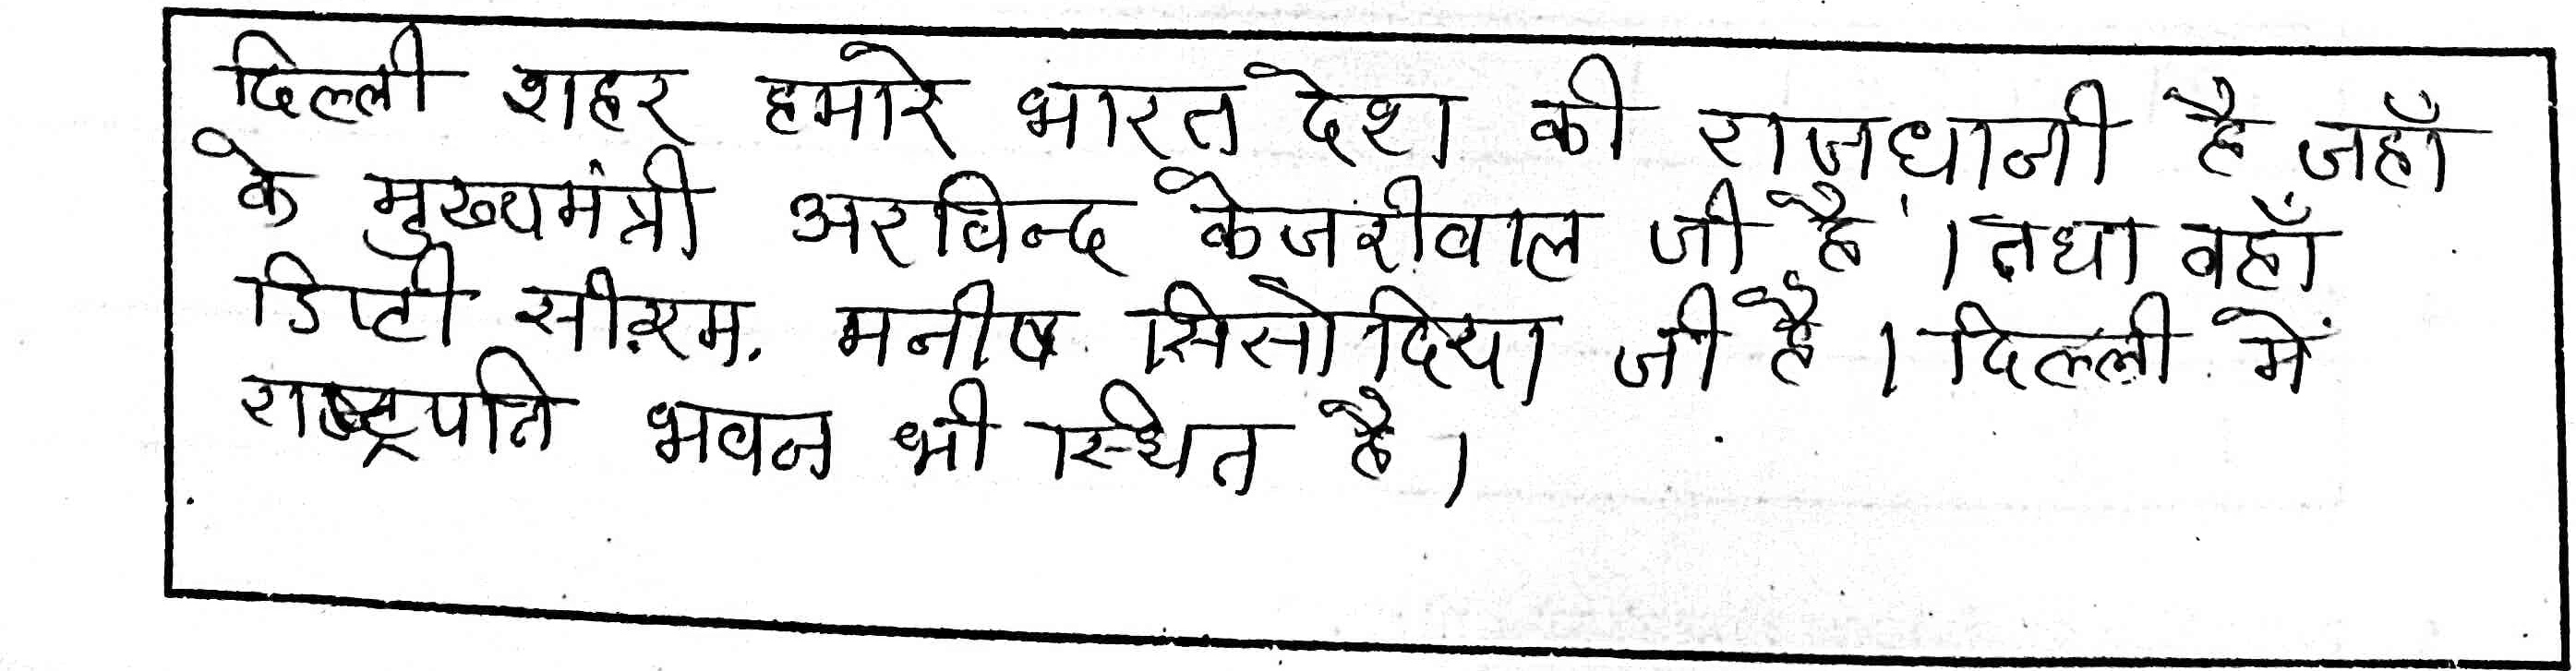 दिल्ली शहर हमारे भारत देश की राजधानी है जहाँ
के मुख्यमंत्री अरविन्द केजरीवाल जी है । तथा वहाँ
डिप्टी सी.एम. मनीष सिसोदिया जी है । दिल्ली में
राष्ट्रपति भवन भी स्थित है ।